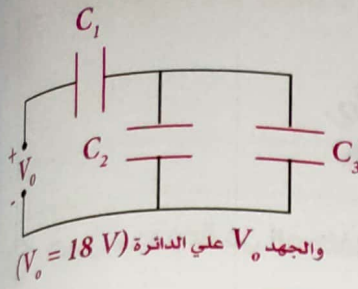 C₁
+
V₀ C₂ C₃
-
والجهد V₀ علي الدائرة (V₀ = 18 V)